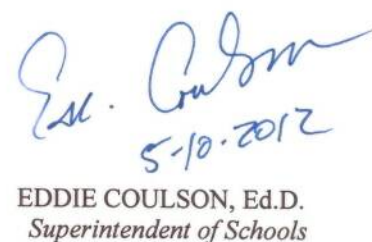 Esc. Coulson
5-10-2012
EDDIE COULSON, Ed.D.
Superintendent of Schools